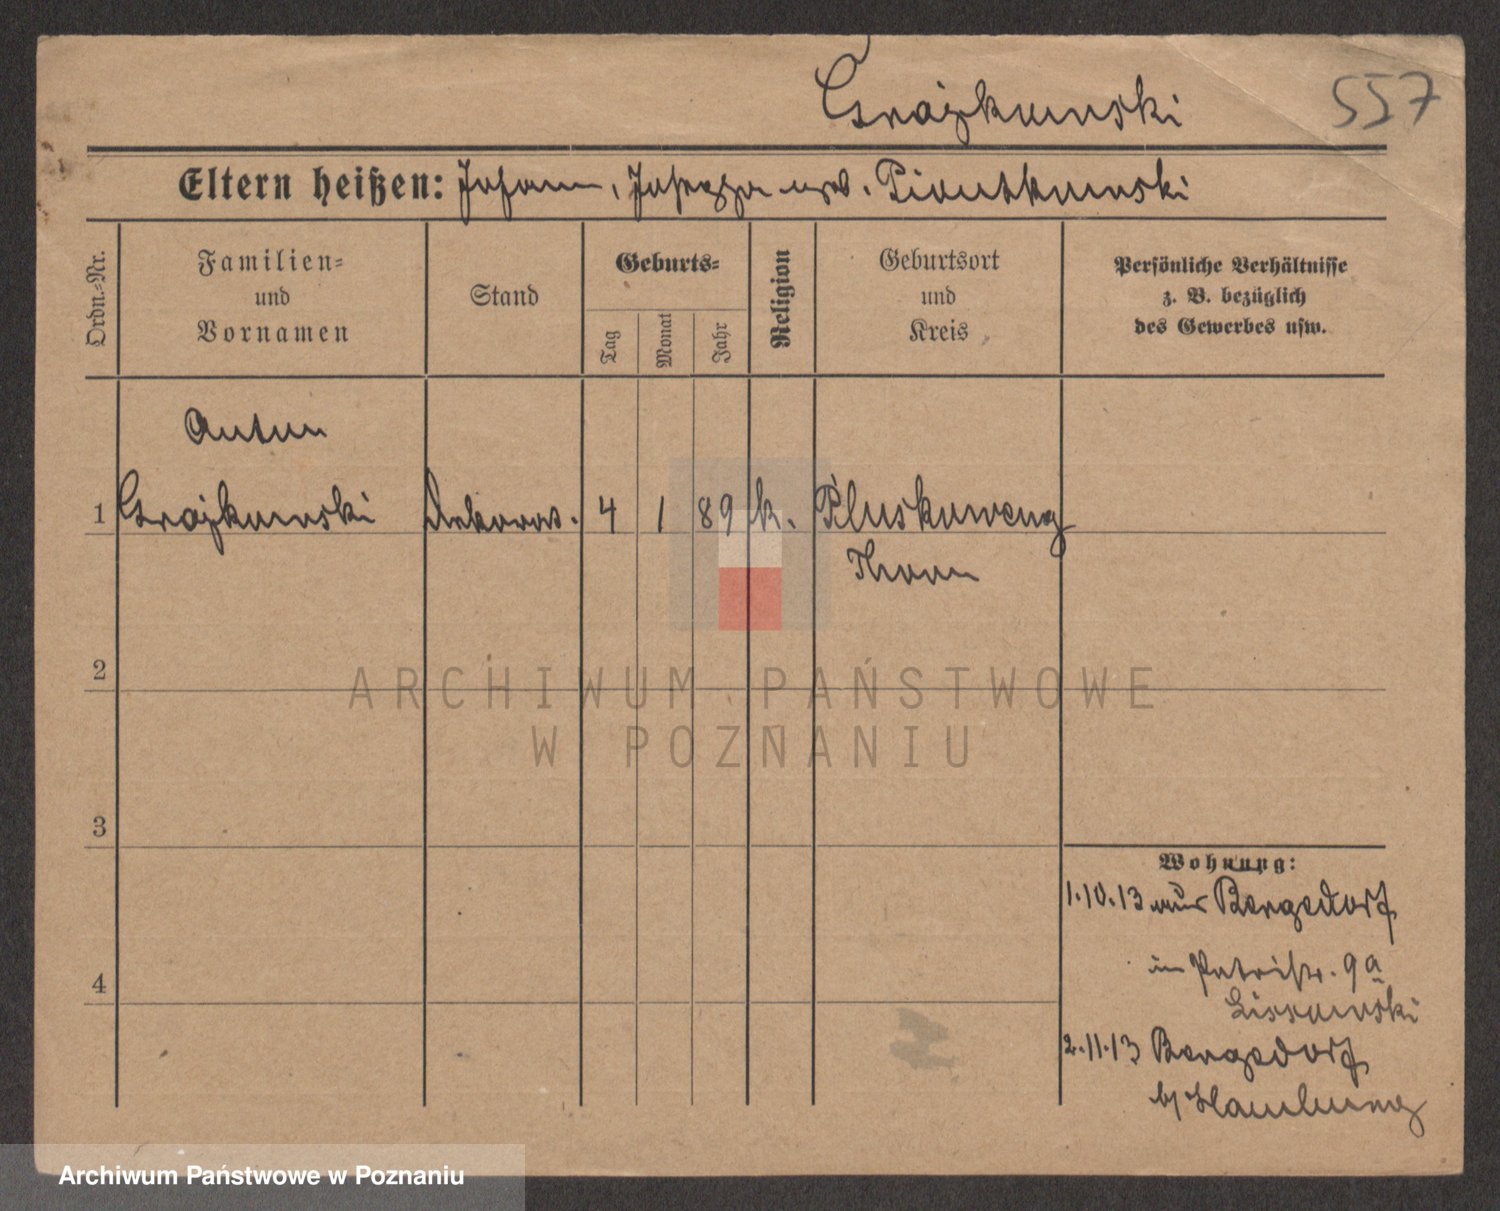 Grajkowski
557
Eltern heißen: Johann, Josepha geb. Piontkowski
Ordn.-Nr.
Familien-
und
Vornamen
Stand
Geburts-
Tag
Monat
Jahr
Religion
Geburtsort
und
Kreis
Persönliche Verhältnisse
z. B. bezüglich
des Gewerbes usw.
Anton
1 Grajkowski Dekorat. 4 1 89 k. Pluskowenz
Thorn
2
ARCHIWUM PAŃSTWOWE
W POZNANIU
3
Wohnung:
1.10.13 aus Bergedorf
in Patristr. 9a
4
Lissowski
2.11.13 Bergedorf
b/ Hamburg
Archiwum Państwowe w Poznaniu